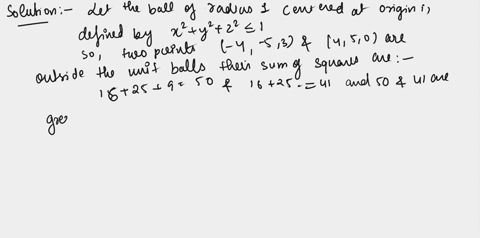 Solution:- Let the ball of radius 1 centered at origin is,
defined by x²+y²+z² ≤ 1
so, two points (-4, -5, 3) & (4, 5, 0) are
outside the unit balls their sum of squares are:-
16+25+9 = 50 & 16+25 = 41 and 50 & 41 are
gre